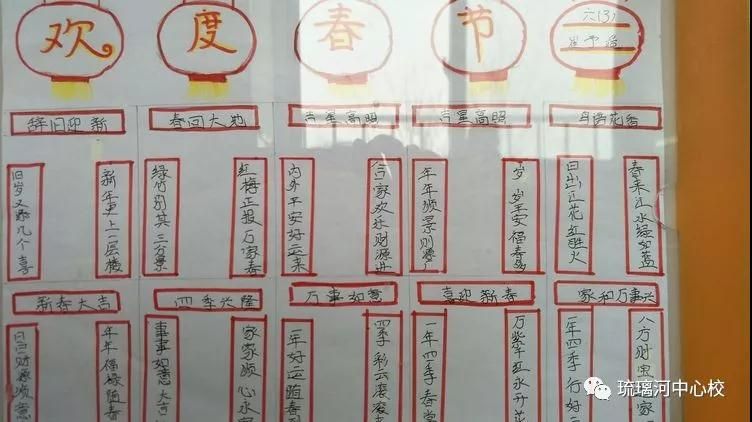 欢度春节
六(3)
辞旧迎新
春回大地
吉星高照
吉星高照
鸟语花香
旧岁又添几个喜
新年更上一层楼
绿竹别其三分景
红梅正报万家春
内外平安好运来
合家欢乐财源进
年年顺景则源广
岁岁平安福寿多
日出江花红胜火
春来江水绿如蓝
新春大吉
四季兴隆
万事如意
喜迎新春
家和万事兴
日日财源顺意
年年福禄随春
事事如意大吉
家家顺心永安
一年好运随春
四季彩云滚滚
一年四季春常
万紫千红永开花
一年四季行好
八方财宝家
琉璃河中心校